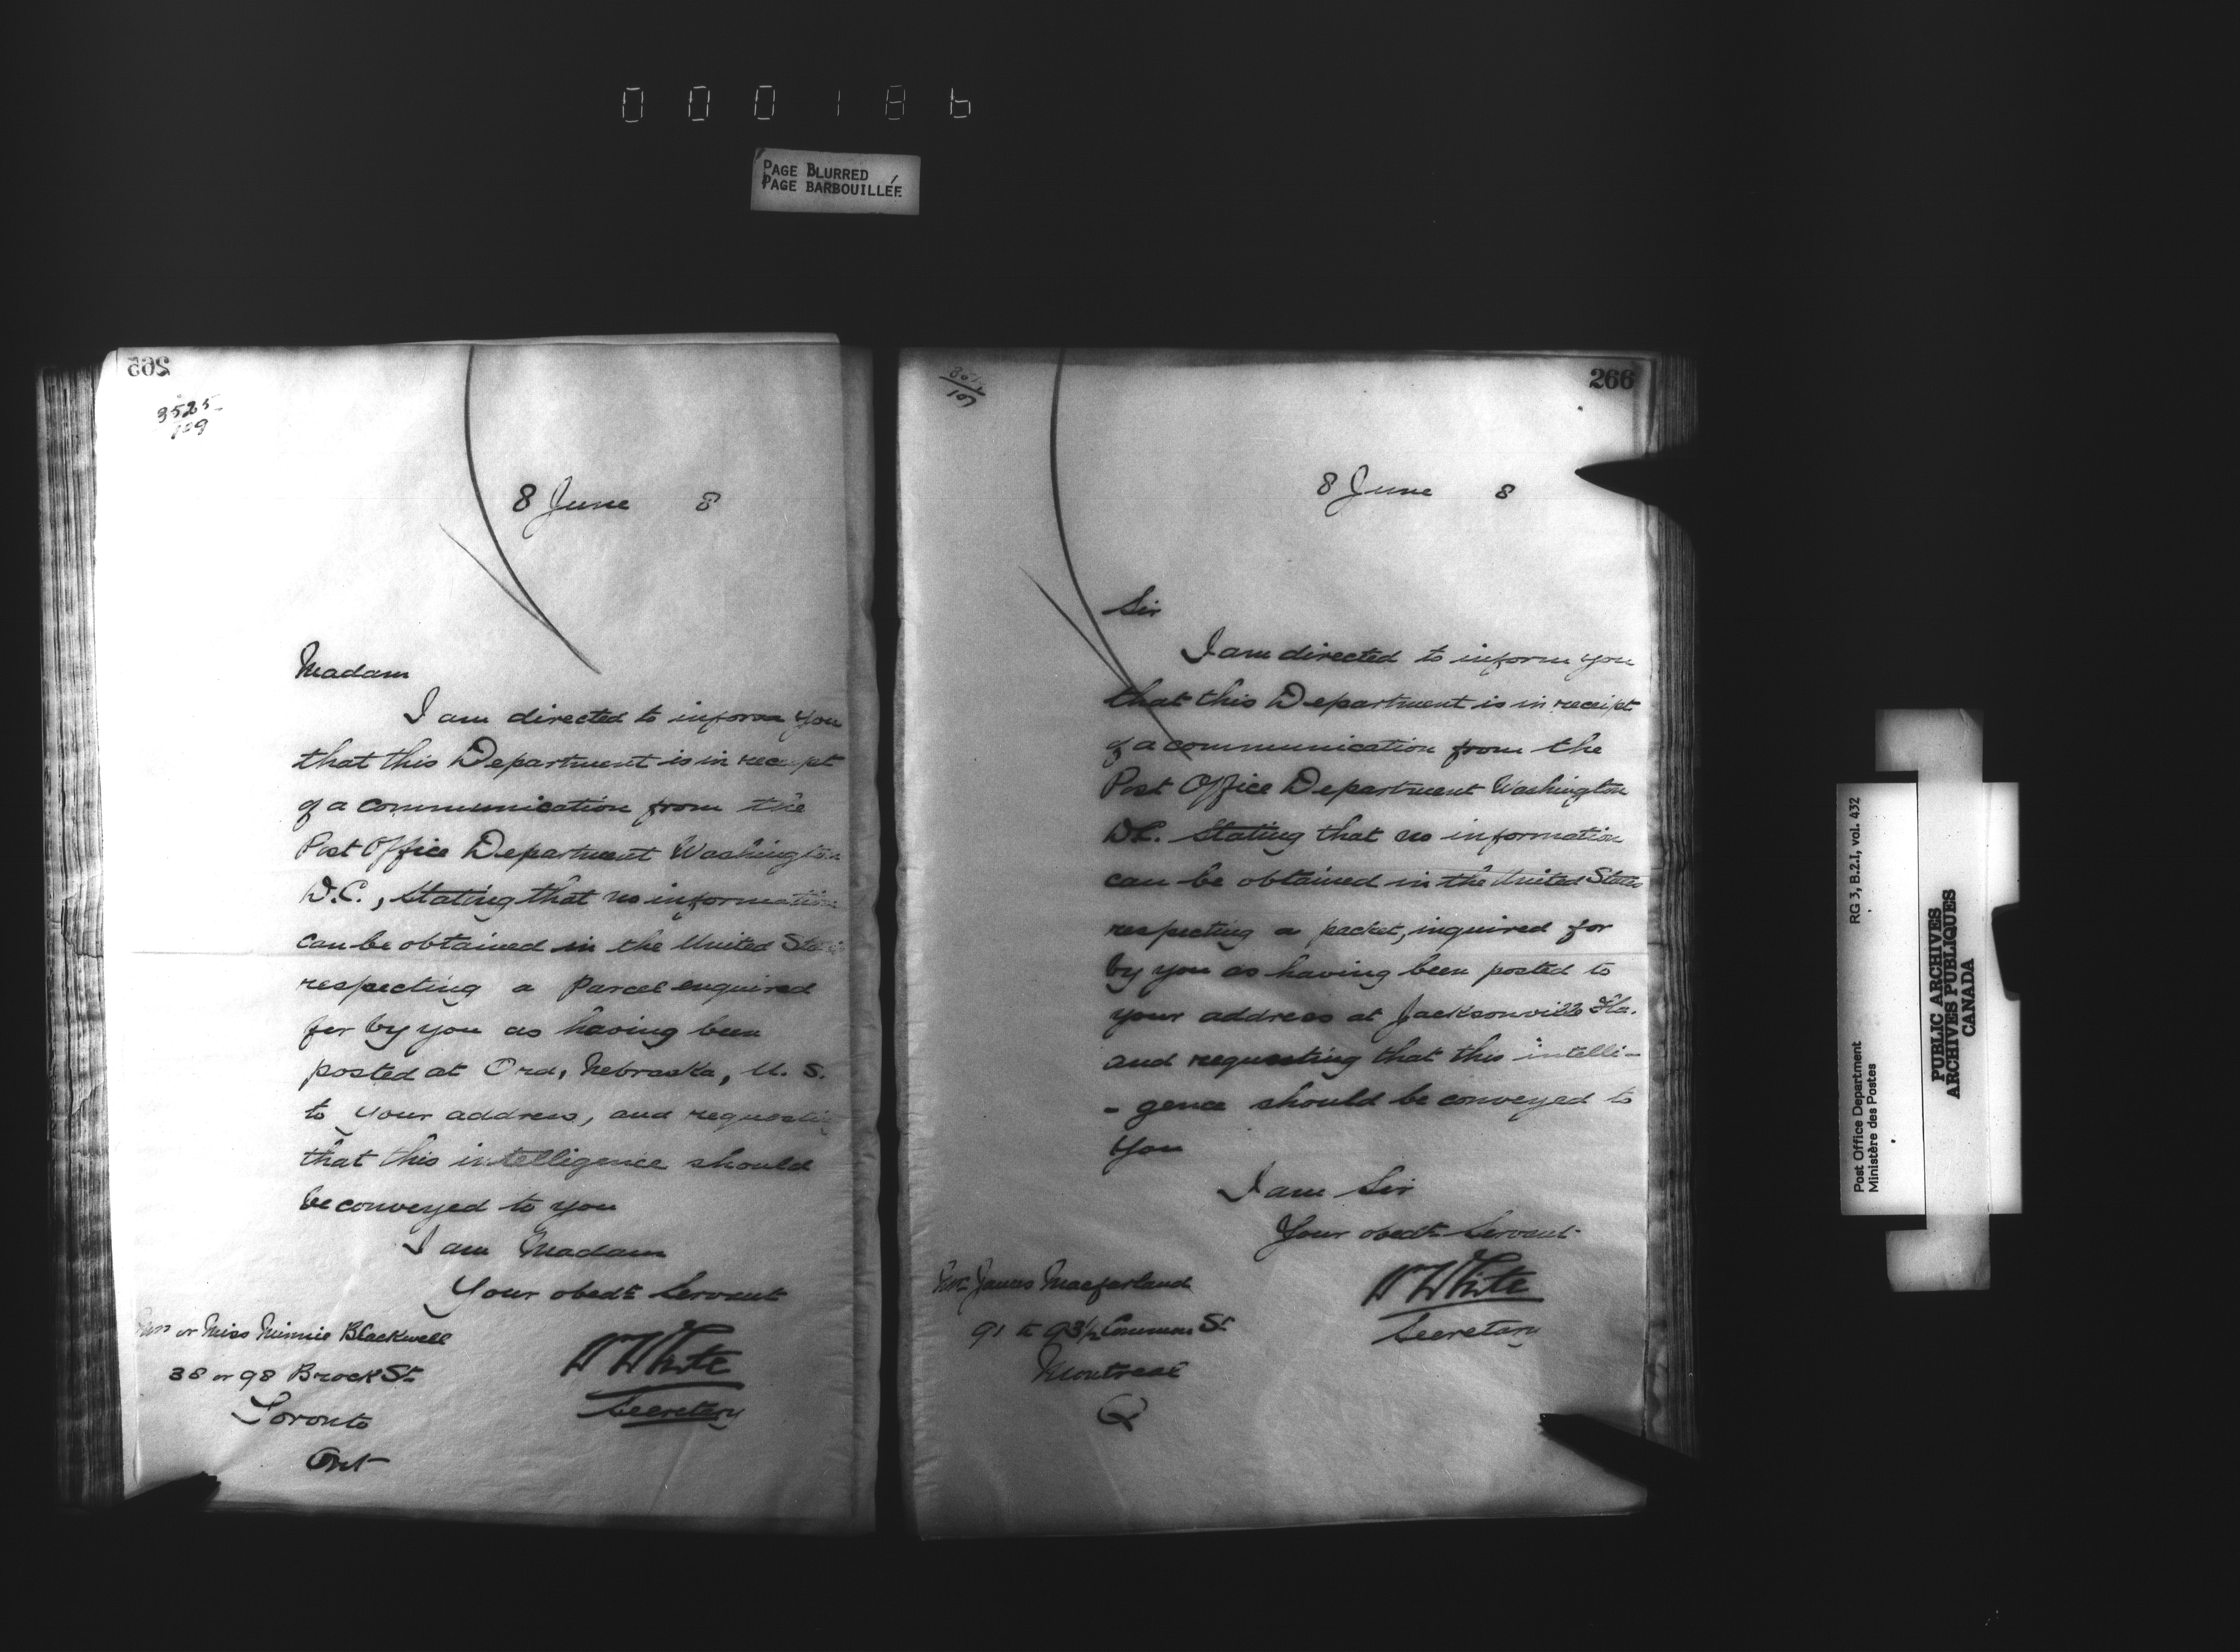 000186
PAGE BLURRED
PAGE BARBOUILLÉE
265
3525
109
8 June 8
Madam
I am directed to inform you
that this Department is in receipt
of a communication from the
Post Office Department Washington
D.C., stating that no information
can be obtained in the United States
respecting a Parcel enquired
for by you as having been
posted at Ord, Nebraska, U. S.
to your address, and requesting
that this intelligence should
be conveyed to you
I am Madam
Your obedt Servant
Mrs or Miss Minnie Blackwell
38 or 98 Brock St
Toronto
Ont
W White
Secretary
266
107
8 June 8
Sir
I am directed to inform you
that this Department is in receipt
of a communication from the
Post Office Department Washington
D.C. Stating that no information
can be obtained in the United States
respecting a packet, inquired for
by you as having been posted to
your address at Jacksonville Fla.
and requesting that this intelli-
- gence should be conveyed to
you
I am Sir
Your obedt Servant
Mr James Macfarland
91 to 93½ Common St
Montreal
Q
W White
Secretary
Post Office Department RG 3, B.2.I, vol. 432
Ministère des Postes
PUBLIC ARCHIVES
ARCHIVES PUBLIQUES
CANADA